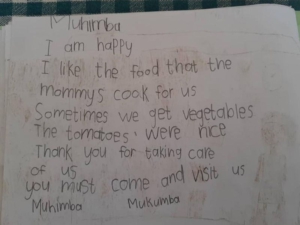 Muhimba
I am happy
I like the food that the
mommys cook for us
Sometimes we get vegetables
The tomatoes were nice
Thank you for taking care
of us
you must come and visit us
Muhimba Mukumba